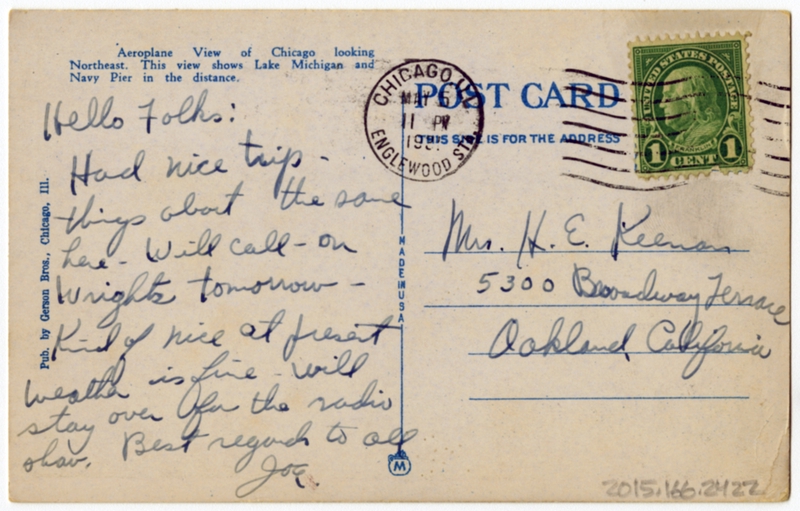 Aeroplane View of Chicago looking
Northeast. This view shows Lake Michigan and
Navy Pier in the distance.
Hello Folks:
Had nice trip -
things about the same
here - Will call - on
Wrights tomorrow -
Kind of nice at present
weather is fine - will
stay over for the radio
show. Best regards to all
Joe
Pub. by Gerson Bros., Chicago, Ill.
MADE IN USA
M
CHICAGO, ILL
MAY
11 PM
ENGLEWOOD STA.
POST CARD
THIS SIDE IS FOR THE ADDRESS
UNITED STATES POSTAGE
FRANKLIN
1 CENT 1
Mrs. H. E. Keenan
5300 Broadway Terrace
Oakland, California
2015.166.2422